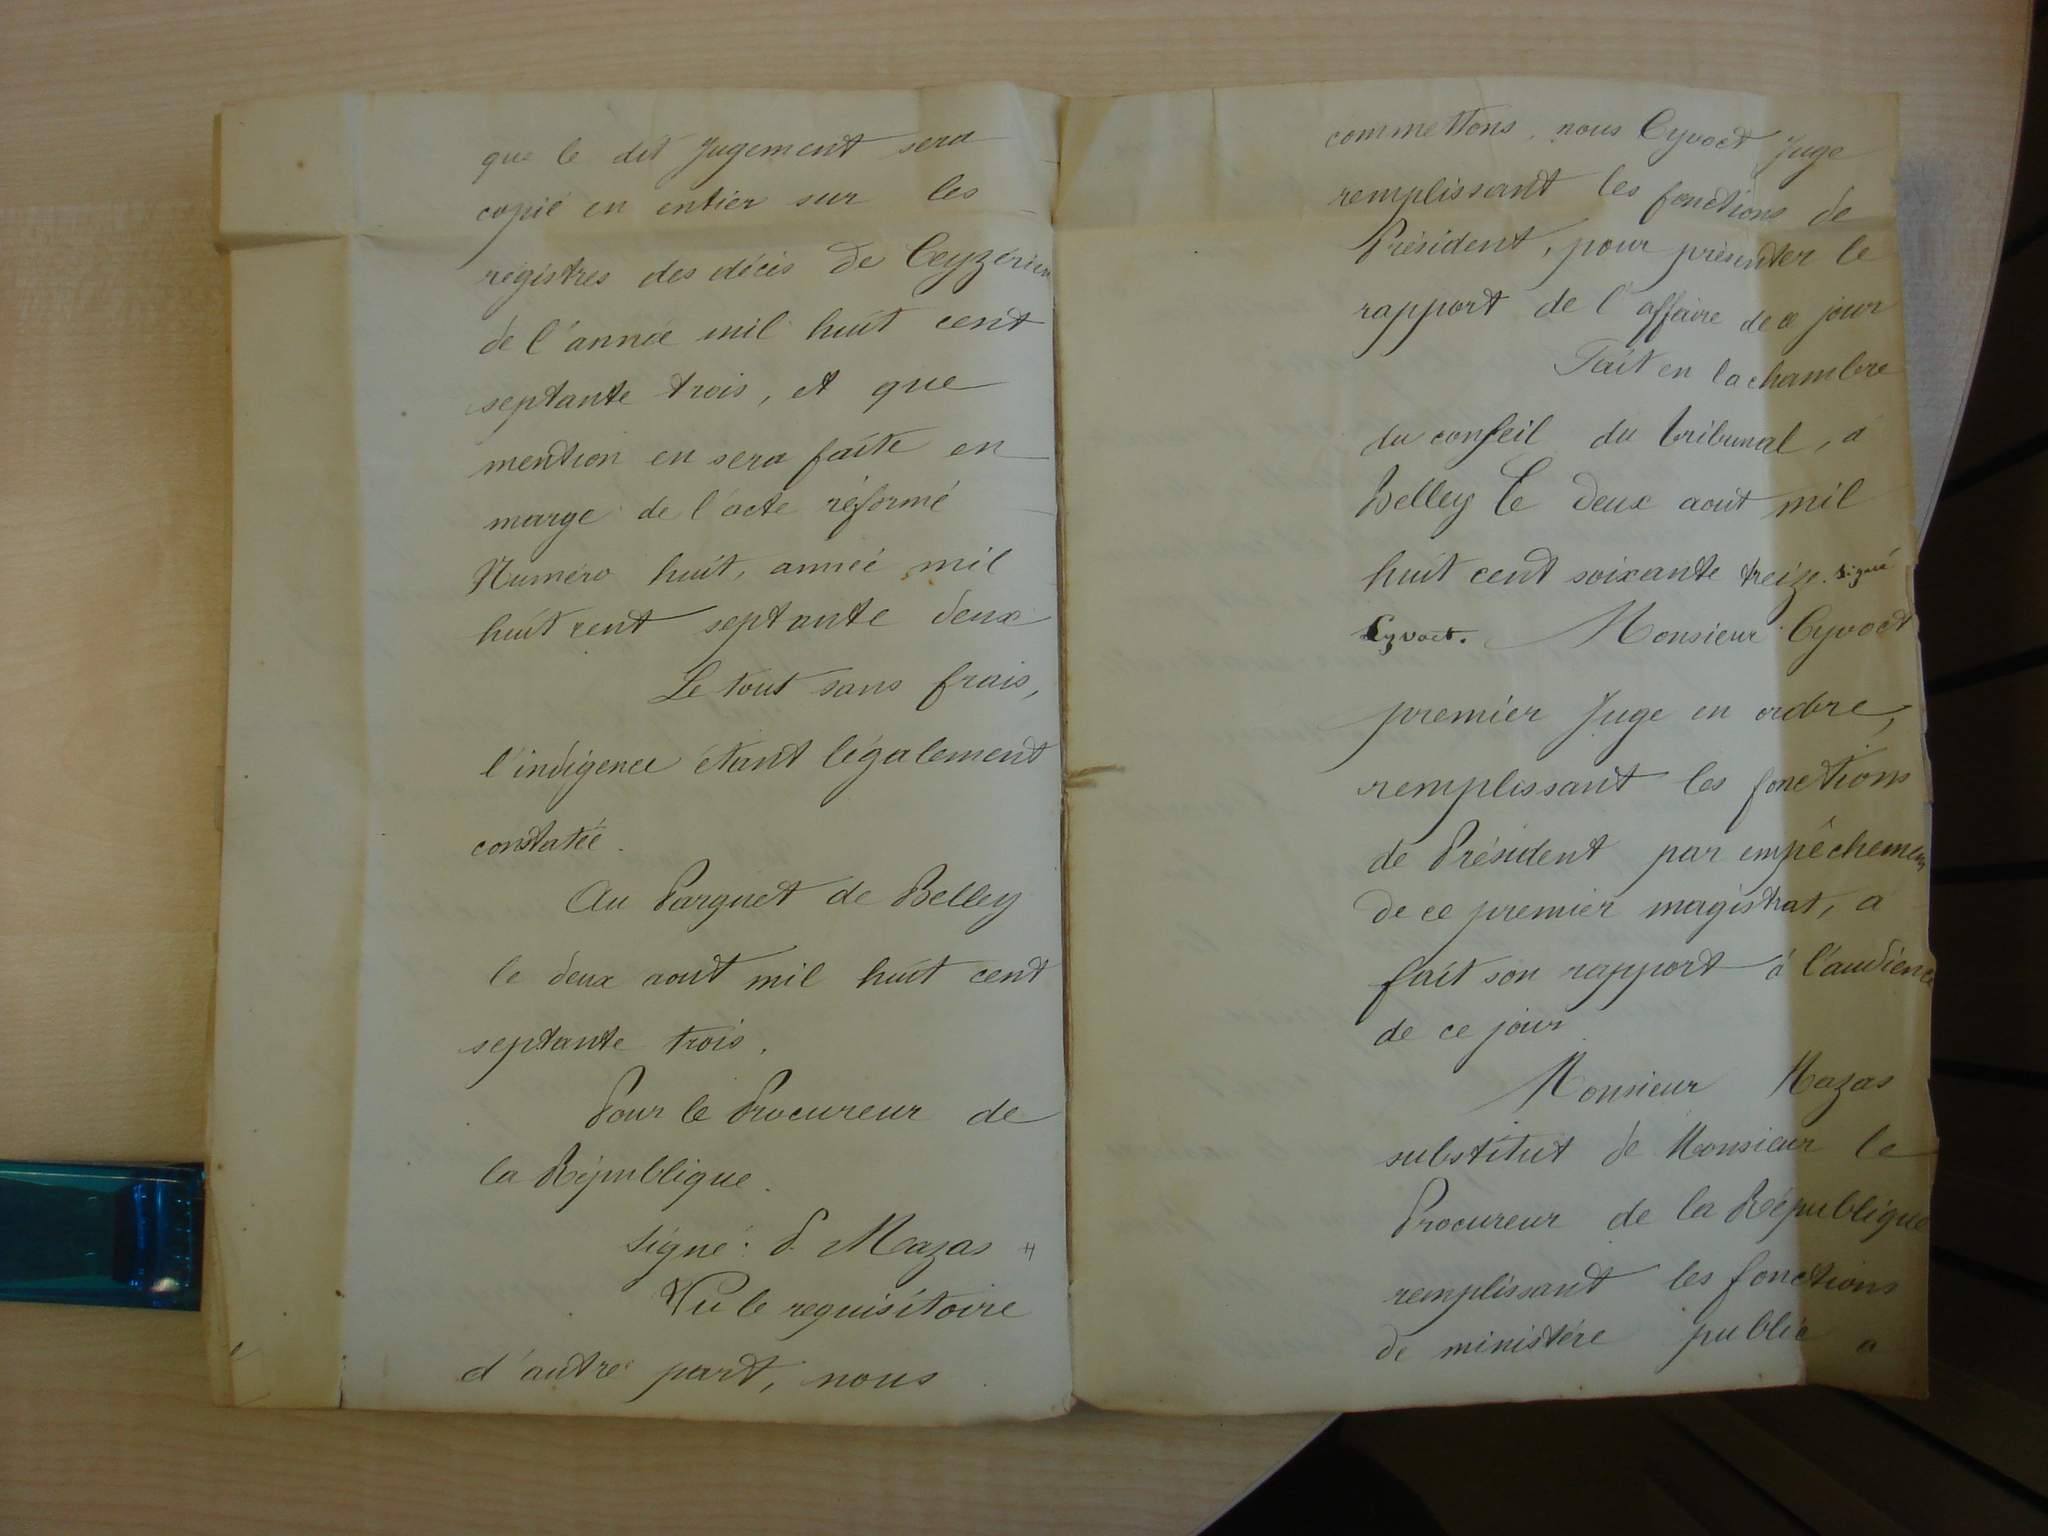 que le dit Jugement sera
copié en entier sur les
régistres des décis de Ceyzérieu
de l'année mil huit cent
septante trois, et que
mention en sera faite en
marge de l'acte réformé
Numéro huit, année mil
huit cent septante deux
Le tout sans frais,
l'indigence étant légalement
constatée.
Au Parquet de Belley
le deux aout mil huit cent
septante trois.
Pour le Procureur de
la République.
Signé: P. Mazas
Vu le requisitoire
d'autre part, nous
commettons, nous Cyvoct Juge
remplissant les fonctions de
Président, pour présenter le
rapport de l'affaire de ce jour
Fait en la chambre
du conseil du tribunal, à
Belley le deux aout mil
huit cent soixante treize. signé
Cyvoct. Monsieur Cyvoct
premier Juge en ordre,
remplissant les fonctions
de Président par empêchemen
de ce premier magistrat, a
fait son rapport à l'audience
de ce jour
Monsieur Mazas
substitut de Monsieur le
Procureur de la République
remplissant les fonctions
de ministére public a